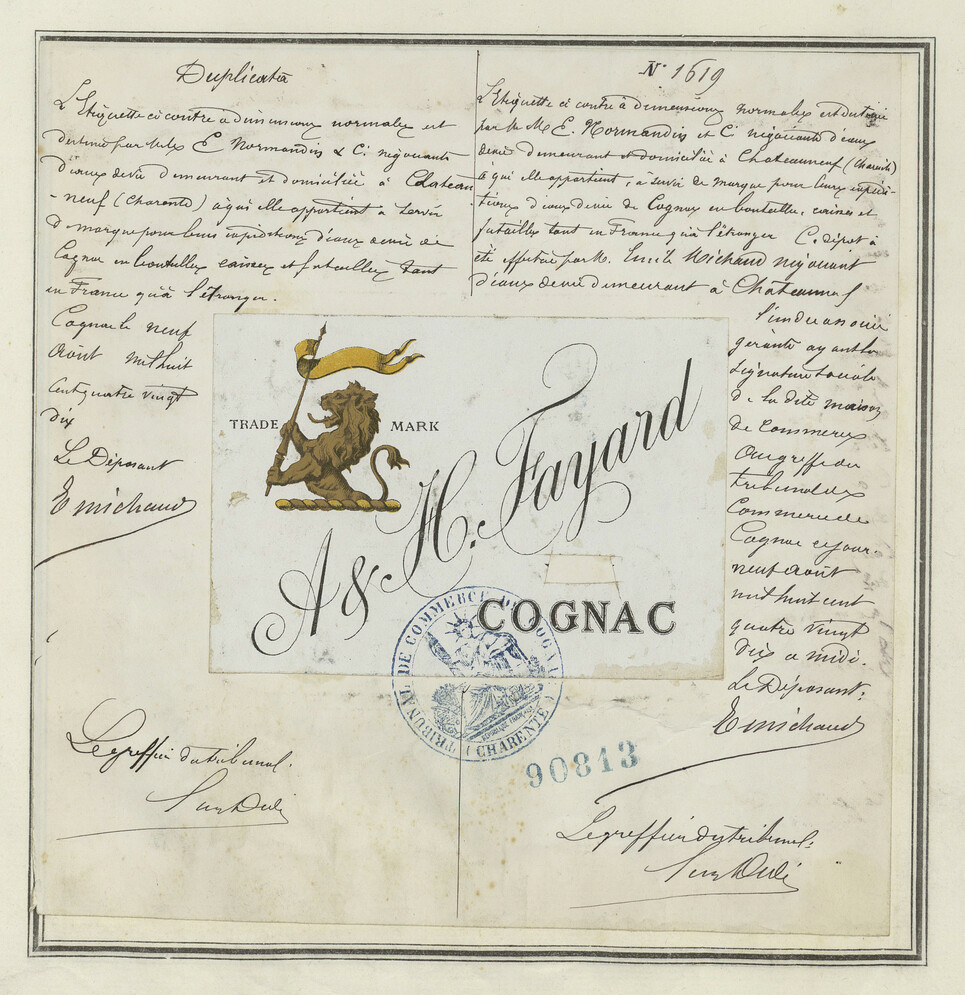 Duplicata
L'Etiquette ci contre a dimensions normales est
destinée par M. Ms E. Normandin & Cie négociants
d'eaux de vie demeurant et domiciliés à Chateau
-neuf (Charente) à qui elle appartient a servir
de marque pour leurs expéditions d'eaux de vie de
Cognac en bouteilles caisses et futailles tant
en France qu'à l'étranger.
Cognac le neuf
Août mil huit
cent quatre vingt
dix
Le Déposant
E Michaud
Le greffier du tribunal.
N° 1619
L'Etiquette ci contre à dimensions normales est destinée
par M. M. E. Normandin et Cie négociants d'eaux
de vie demeurant et domiciliés à Chateauneuf (Charente)
à qui elle appartient, à servir de marque pour leurs expédi-
tions d'eaux de vie de Cognac en bouteilles, caisses et
futailles tant en France qu'à l'étranger Ce dépot a
été effectué par M. Emile Michaud négociant
d'eaux de vie demeurant à Chateauneuf
l'un des associés
gérants ayant la
signature sociale
de la dite maison
de Commerce
Au greffe du
tribunal de
Commerce de
Cognac ce jour.
neuf Août
mil huit cent
quatre vingt
dix a midi.
Le Déposant:
E Michaud
Le greffier du tribunal.
TRADE MARK
A & H. Fayard
COGNAC
TRIBUNAL DE COMMERCE DE COGNAC
(CHARENTE)
90813